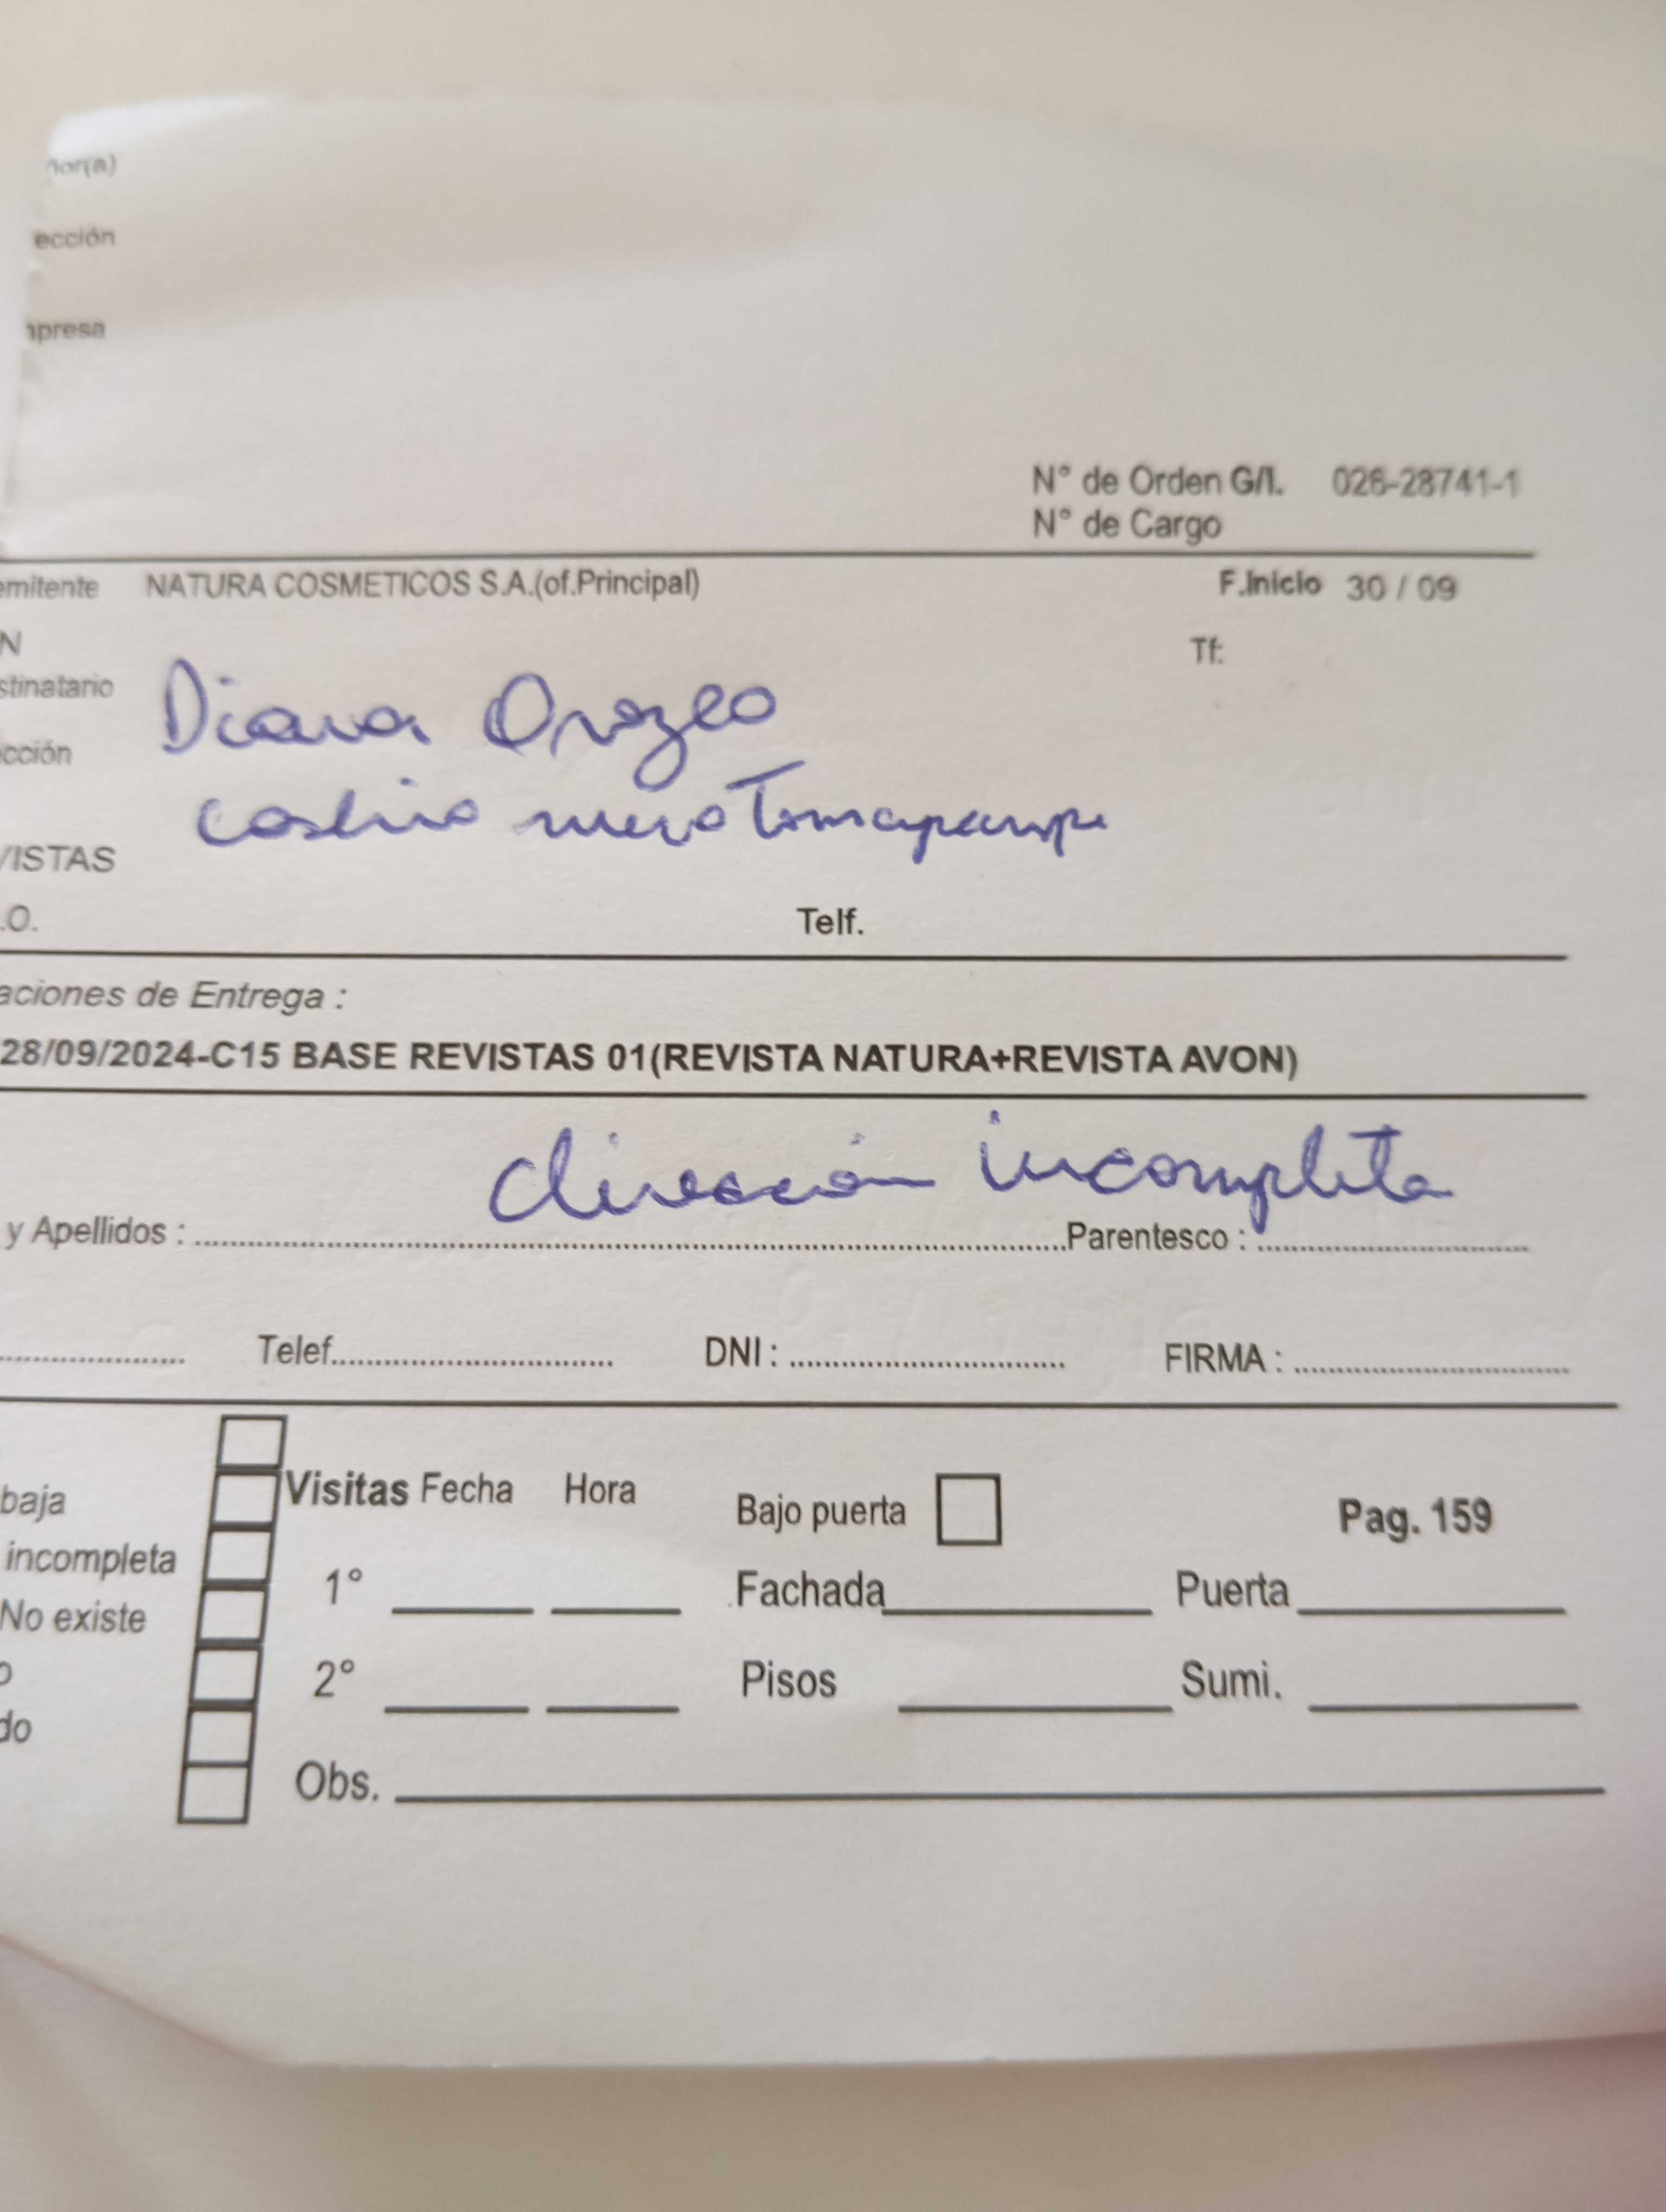 ñor(a)
ección
mpresa
N° de Orden G/I. 026-28741-1
N° de Cargo
emitente NATURA COSMETICOS S.A.(of.Principal) F.Inicio 30 / 09
N Tf:
stinatario Diana Orozco
cción
castillo nuevo
VISTAS
.O. Telf.
aciones de Entrega :
28/09/2024-C15 BASE REVISTAS 01(REVISTA NATURA+REVISTA AVON)
dirección incompleta
y Apellidos : Parentesco :
Telef. DNI : FIRMA :
Visitas Fecha Hora
baja Bajo puerta Pag. 159
incompleta
1° Fachada Puerta
No existe
2° Pisos Sumi.
o
do
Obs.